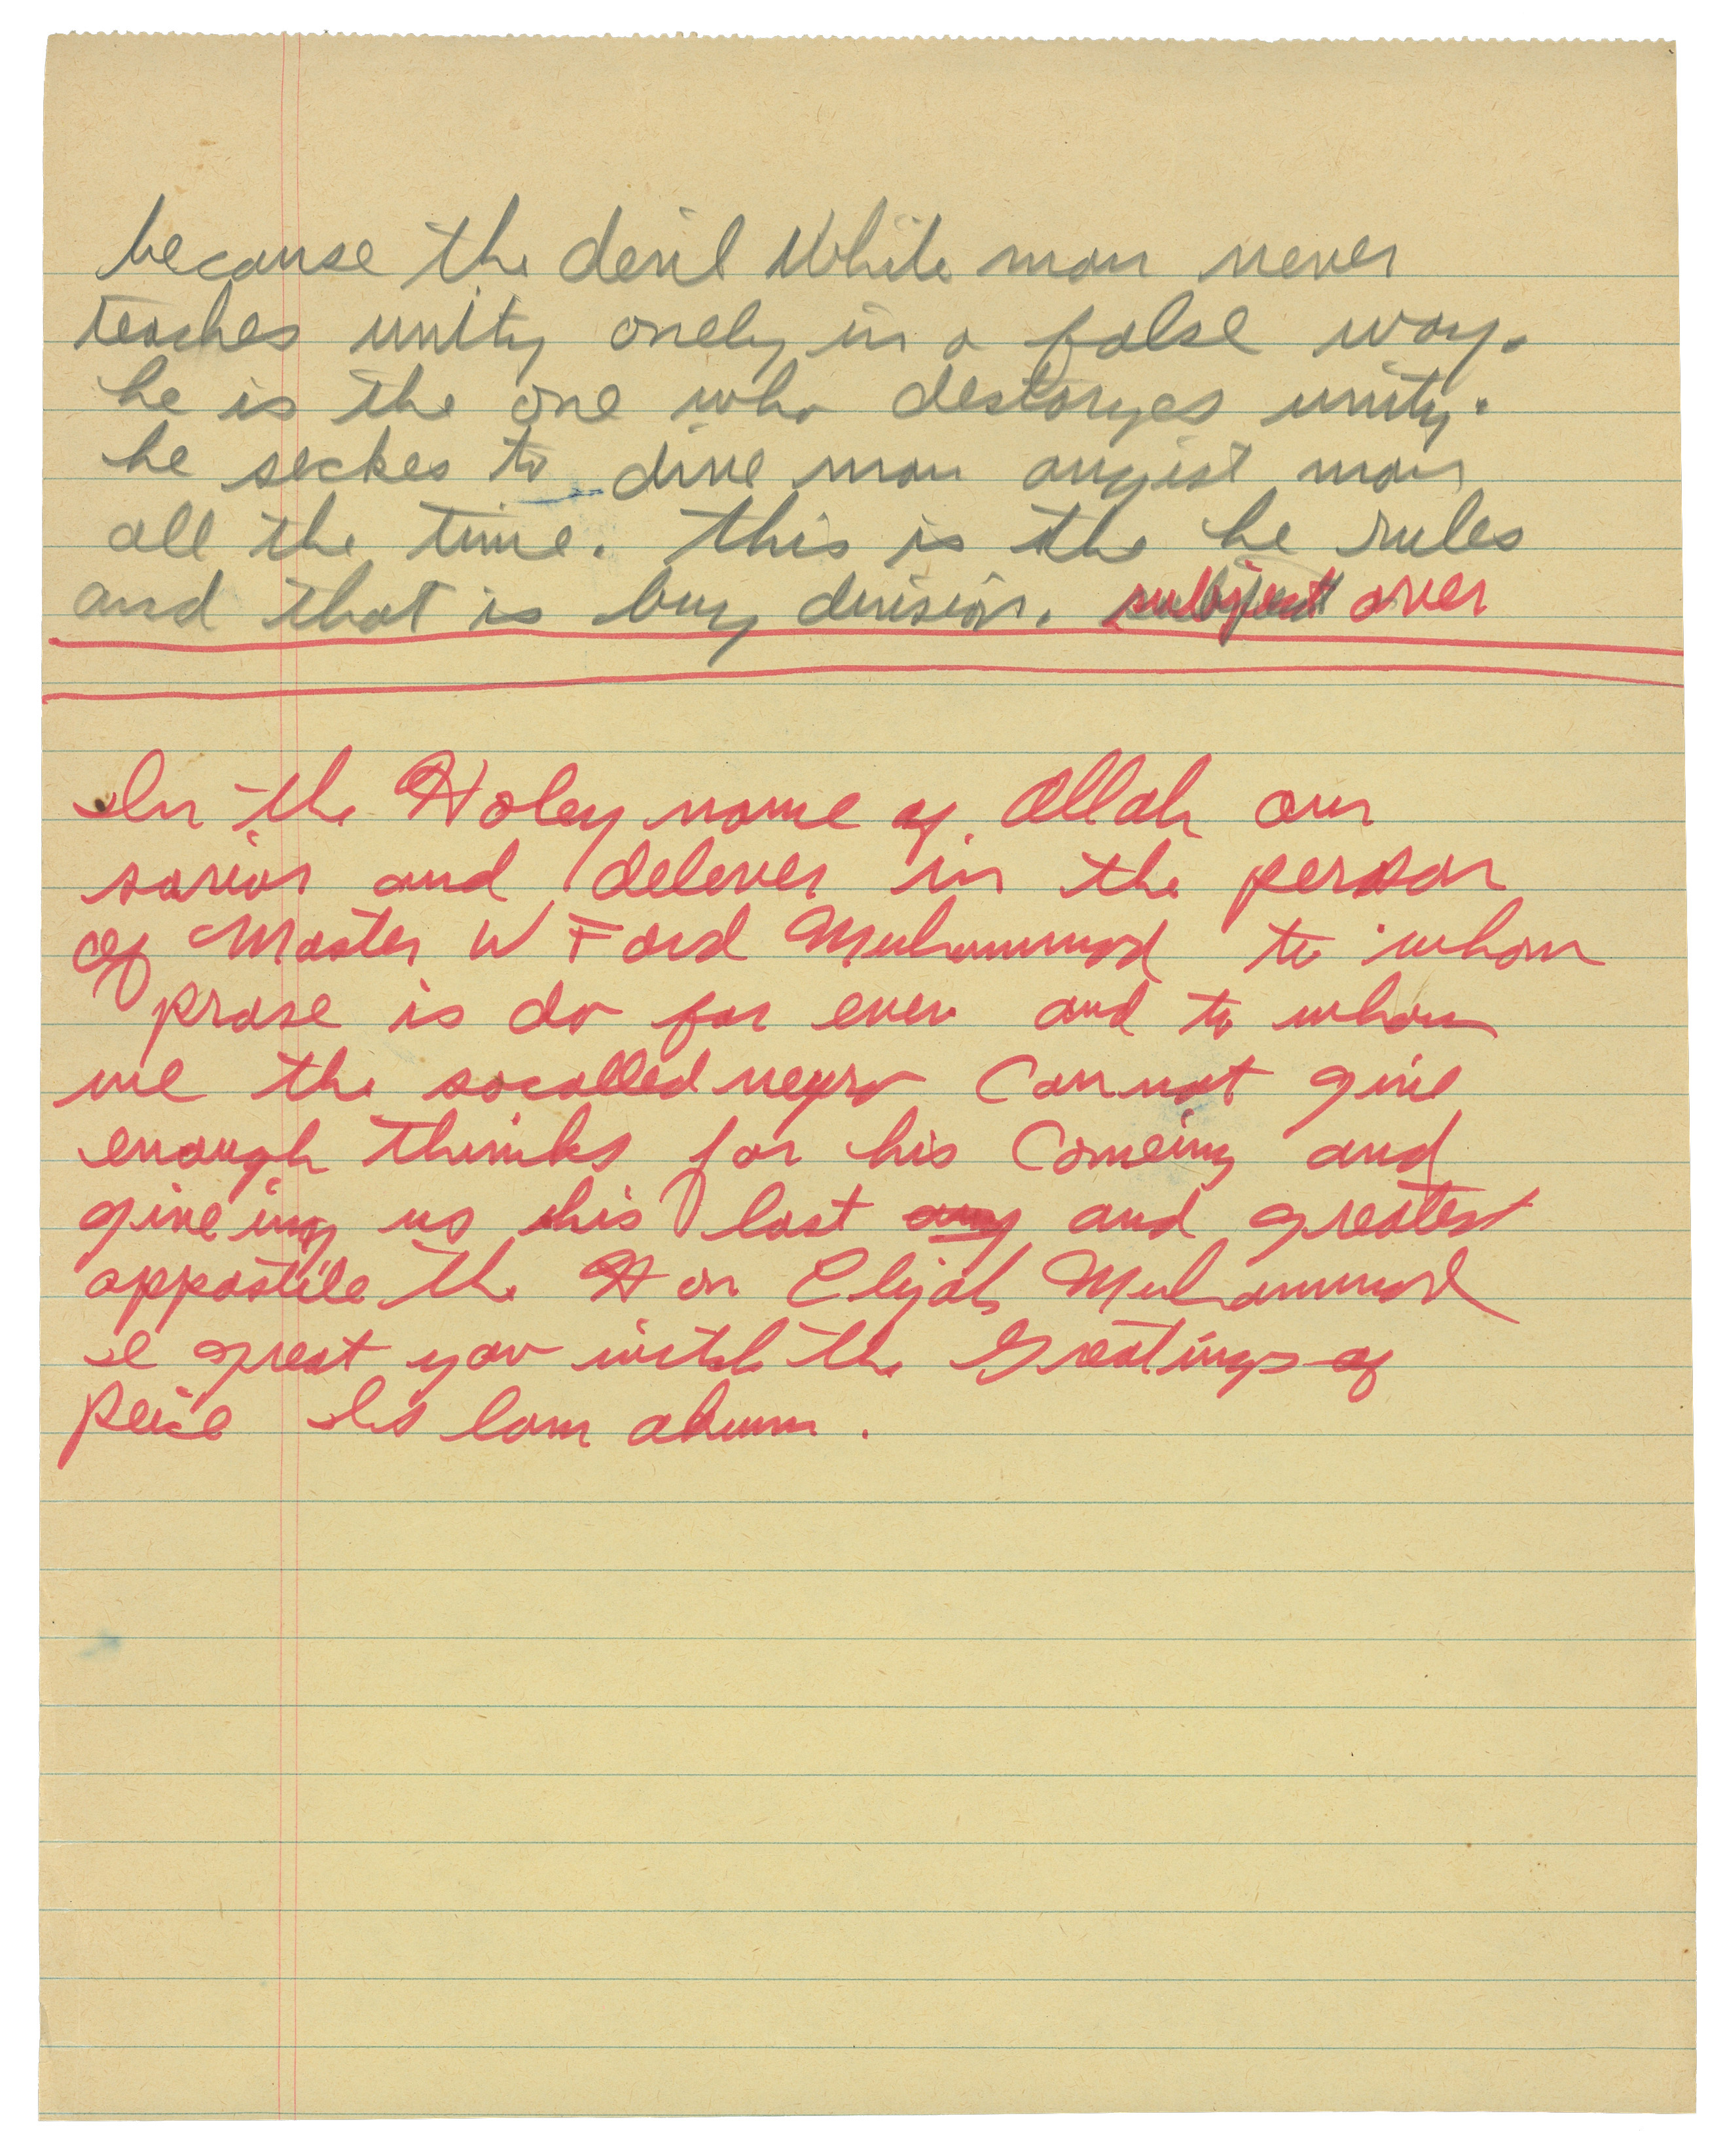 because the devil White man never
teaches unity onely in a false way.
he is the one who destoryes unity.
he seekes to drive man angist man
all the time. this is the he rules
and that is buy division. subject over
In the Holey name of Allah our
savior and delever in the person
of Master W Ford Muhammad to whom
prase is do for ever and to whom
we the socalled negro Can not give
enough thinks for his Comeing and
giveing us his last any and greatest
appostile the Hon Elijah Muhammad
I great you with the Greatings of
peice As lam akum.